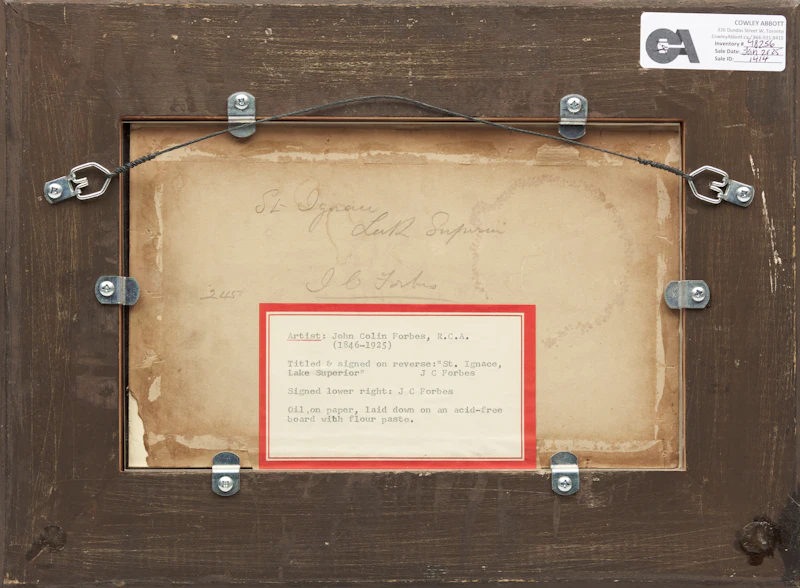 COWLEY ABBOTT
326 Dundas Street W, Toronto
CowleyAbbott.ca
Inventory # 48256
Sale Date: Jan 2025
Sale ID: 1414
CA
St Ignace
Lake Superior
245
J C Forbes
Artist: John Colin Forbes, R.C.A.
(1846-1925)
Titled & signed on reverse:"St. Ignace,
Lake Superior" J C Forbes
Signed lower right: J C Forbes
Oil on paper, laid down on an acid-free
board with flour paste.